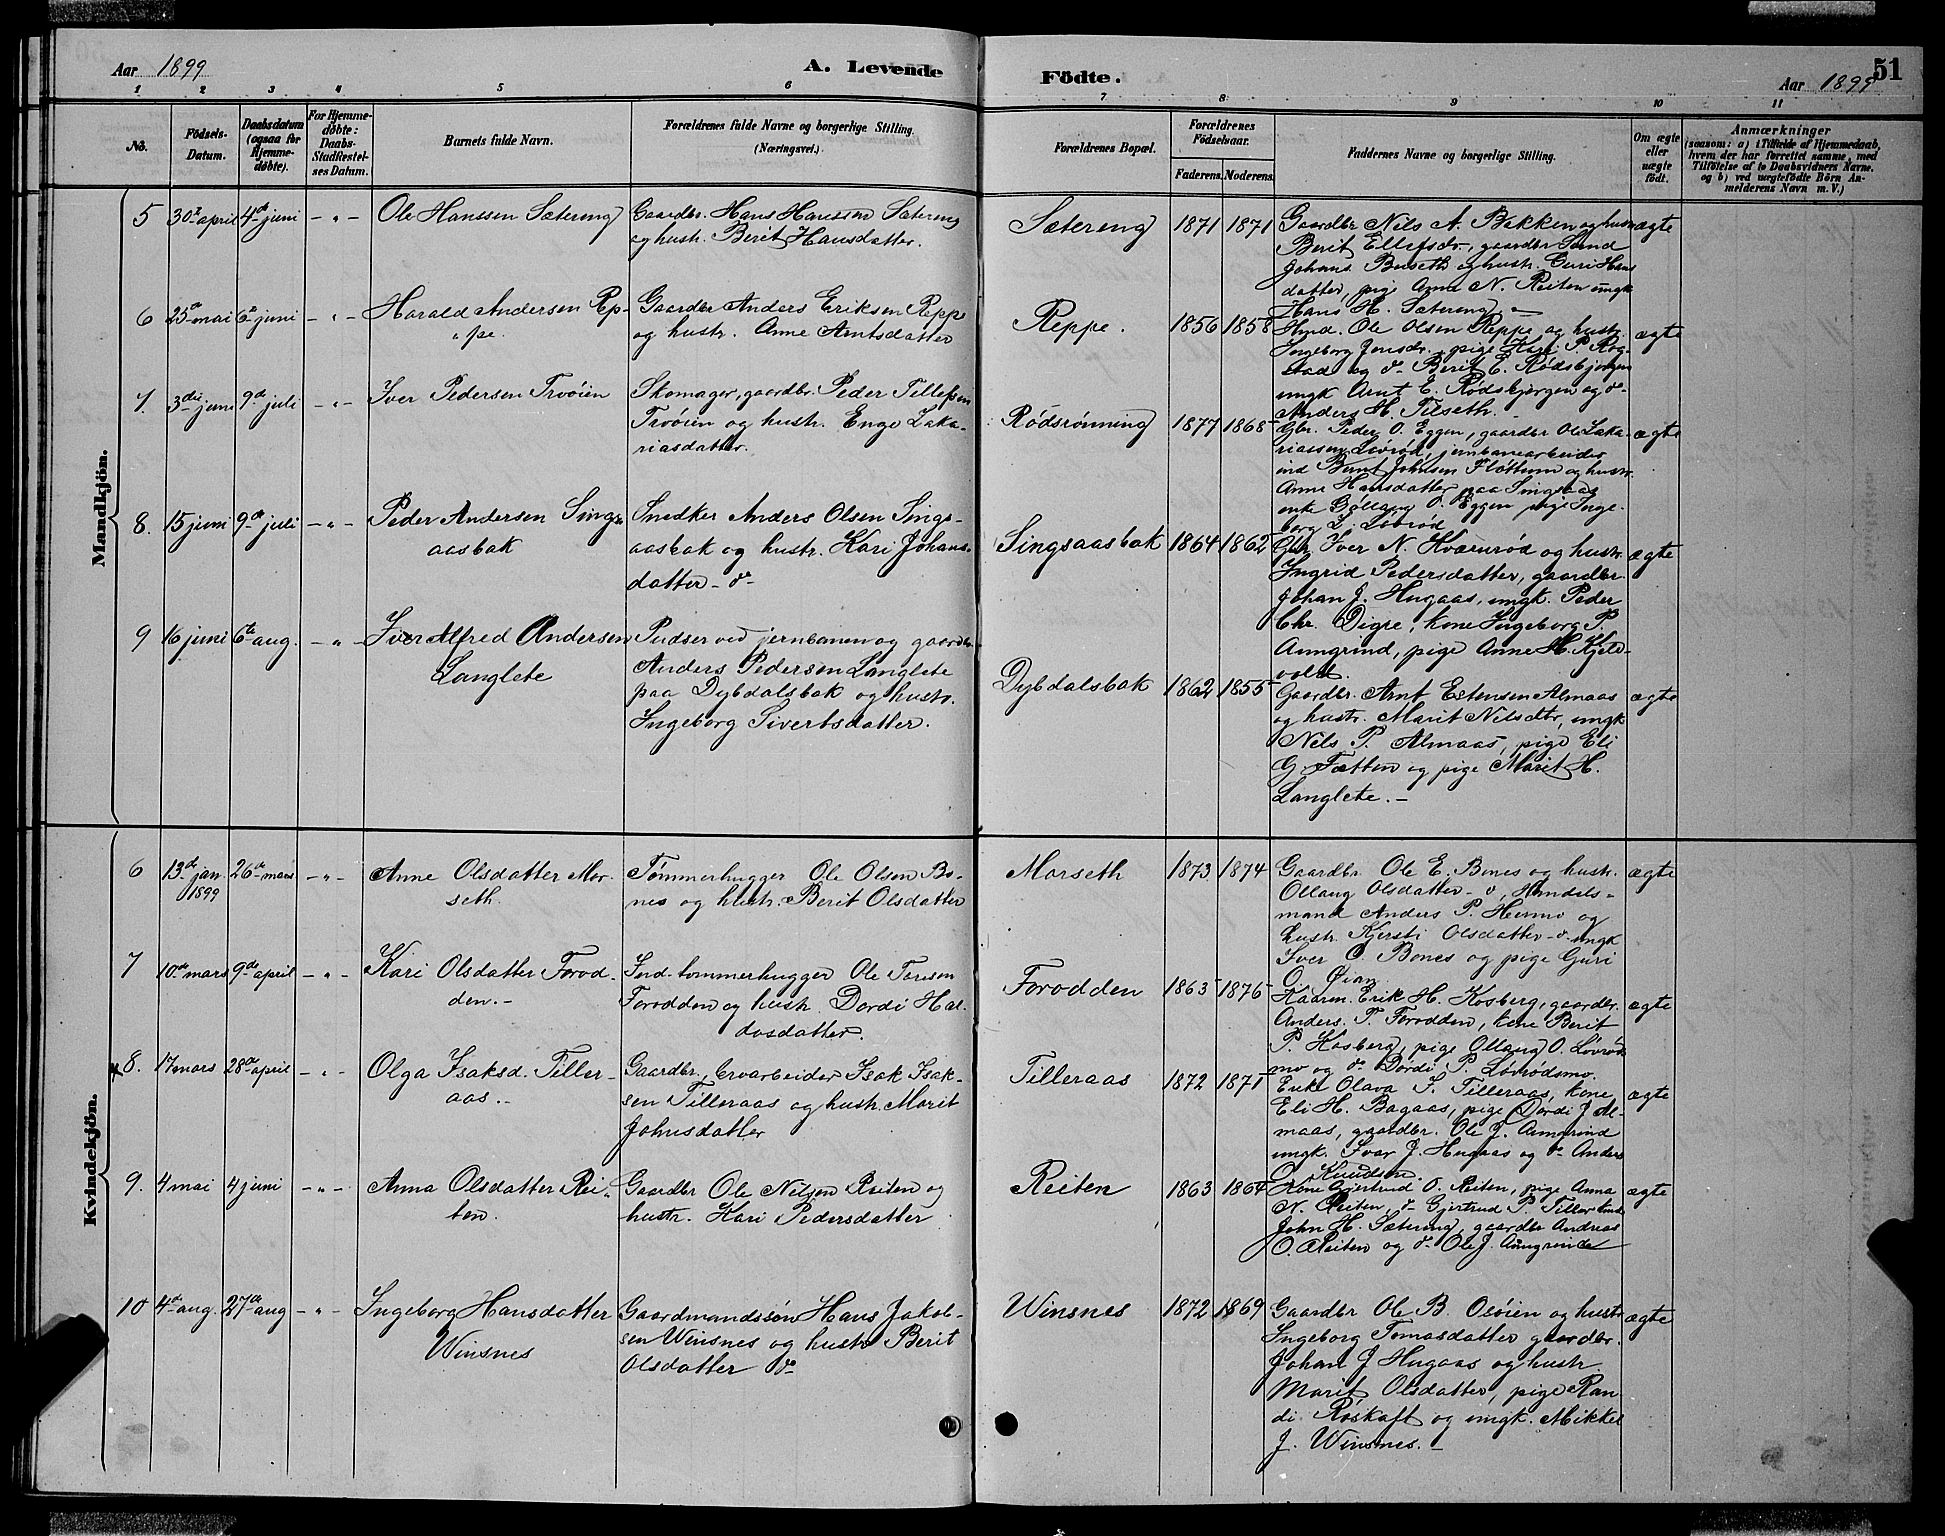 Aar 1899
A. Levende
Födte.
Aar 1899
51
1 2 3 4 5 6 7 8 9 10 11
No.
Födsels-
Datum.
Daabsdatum
(ogsaa for
Hjemme-
döbte).
For Hjemme-
döbte:
Daabs-
Stadfæstel-
ses Datum.
Barnets fulde Navn.
Forældrenes fulde Navne og borgerlige Stilling.
(Næringsvei.)
Forældrenes Bopæl.
Forældrenes
Födselsaar.
Faderens. Moderens.
Faddernes Navne og borgerlige Stilling.
Om ægte
eller
uægte
födt.
Anmærkninger
(saasom: a) i Tilfælde af Hjemmedaab,
hvem der har forrettet samme, med
Tilföielse af to Daabsvidners Navne,
og b) ved uægtefödte Börn An-
melderens Navn m. V.)
Mandkjön.
5 30te april 4de juni - " - Ole Hanssen Sætereng
Gaardbr. Hans Hanssen Sætereng
og hustr. Berit Hansdatter.
Sætereng 1871 1871
Gaardbr Nils A. Bakken og hustr
Berit Ellefsdr, gaardbr Svend
Johans. Buseth og hustr. Guri Hans
datter, pige Anne N. Reiten ungk
Hans H. Sætereng -
ægte
6 25de mai 6te juni - " - Harald Andersen Rep-
pe.
Gaardbr Anders Eriksen Reppe
og hustr. Anne Arntsdatter
Reppe. 1856 1858
Hmd. Ole Olsen Reppe og hustr.
Ingeborg Jonsdr. pige Kari P. Rog-
stad og do Berit E. Rødsbjørgen
ungk Arnt E. Rødsbjørgen og do
Anders H. Tilseth. -
ægte
7. 3die juni 9de juli - " - Iver Pedersen Trøøien
Skomager, gaardbr. Peder Tillefsen
Trøøien og hustr. Enge Zaka-
riasdatter.
Rødsrønning 1877 1868
Gbr. Peder O. Eggen, gaardbr Ole Zaka-
riassen Løvrød, jernbanearbeider
ind Bernt Johnsen Flottum og hustr.
Anne Hansdatter paa Singsaas
enke Gøllaug O. Eggen pige Inge-
borg Z. Løvrød
ægte
8. 15 juni 9de juli - " - Peder Andersen Sings-
aasbak
Snedker Anders Olsen Sings-
aasbak og hustr. Kari Johans-
datter - do
Singsaasbak 1864 1862
Gbr. Iver N. Kværnrød og hustr.
Ingrid Pedersdatter, gaardbr.
Johan J. Hugaas, ungk. Peder
Chr. Digre, kone Ingeborg P.
Aungrind, pige Anne H. Kjeld-
vold.
ægte
9 16 juni 6te aug. - " - Iver Alfred Andersen
Langlete
Pudser ved jernbanen og gaardbr.
Anders Pedersen Langlete
paa Dybdalsbak og hustr.
Ingeborg Sivertsdatter.
Dybdalsbak 1862 1855
Gaardbr. Arnt Estensen Almaas
og hustr. Marit Nilsdtr, ungk
Nils P. Almaas, pige Eli
G. Fætten og pige Marit H.
Langlete. -
ægte
Kvindekjön.
6 13de jan. 26de mars - " -
1899
Anne Olsdatter Mor-
seth.
Tømmerhugger Ole Olsen Bo-
nes og hustr. Berit Olsdatter
Morseth 1873 1874
Gaardbr Ole E. Bones og hustr.
Ollaug Olsdatter - do, Handels-
mand Anders P. Hermo og
hustr. Kjersti Olsdatter - do ungk
Iver O. Bones og pige Guri
O. Øian
ægte
7 10de mars 9de april - " - Kari Olsdatter Forod-
den. -
Ind. tømmerhugger Ole Toresen
Forodden og hustr. Dordi Hal-
dosdatter.
Forodden 1863 1876
Kaarm. Erik H. Kosberg, gaardbr.
Anders T. Forodden, kone Berit
P. Kosberg, pige Ollaug O. Løvrøds
mo og do Dordi P. Løvrødsmo.
ægte
8. 17 mars 28de april - " - Olga Isaksd. Tiller-
aas. -
Gaardbr., broarbeider Isak Isak-
sen Tilleraas og hustr. Marit
Johnsdatter
Tilleraas 1872 1871
Enke Olava I. Tilleraas, kone
Eli H. Bagaas, pige Dordi J Al-
maas, gaardbr. Ole J. Aungrind
ungk. Ivar J. Hugaas og do Anders
O. Knudsen.
ægte
9. 4 mai 4 juni - " - Anna Olsdatter Rei-
ten.
Gaardbr Ole Nilsen Reiten og
hustr. Kari Pedersdatter
Reiten 1863 1864
Kone Gjertrud O. Reiten, pige Anna
N. Reiten, do Gjertrud P. Tiller
John H. Sætereng, gaardbr Andreas
O. Reiten og do Ole J. Aungrinde
ægte
10 4de aug. 27de aug - " - Ingeborg Hansdatter
Winsnes
Gaardmandssøn Hans Jakob-
sen Winsnes og hustr Berit
Olsdatter do
Winsnes 1872 1869
Gaardbr Ole B. Osøien og hustr
Ingeborg Tomasdatter gaardbr.
Johan J Hugaas og hustr.
Marit Olsdatter, pige Ran
di Røskaft og ungk. Mikkel
J. Winsnes. -
ægte